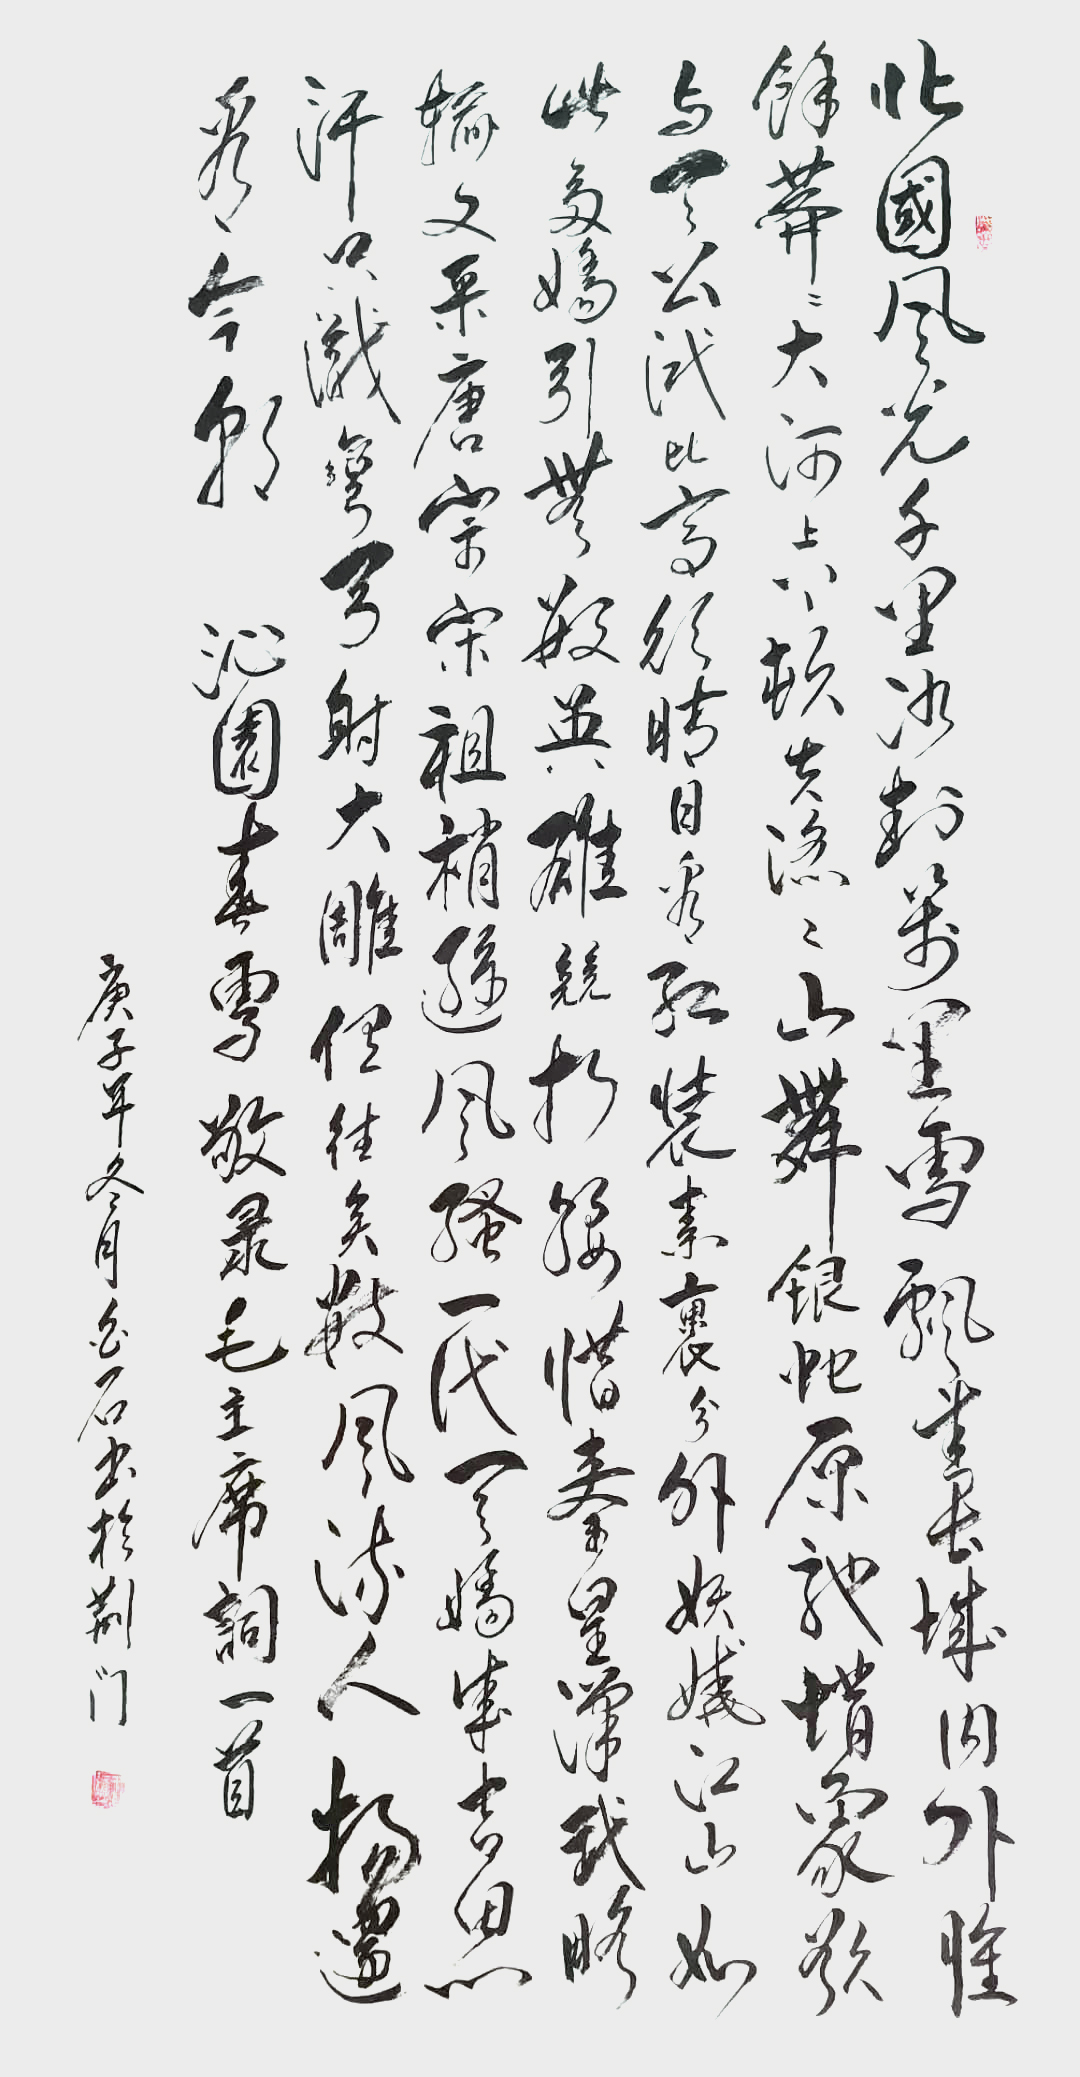 北國风光千里冰封萬里雪飄望長城内外惟
餘莽〻大河上下頓失滔〻山舞銀蛇原馳蜡象欲
与天公試比高须晴日看红裝素裹分外妖嬈江山如
此多嬌引無數英雄競折腰惜秦皇漢武略
輸文采唐宗宋祖稍遜风騷一代天嬌成吉思
汗只識彎弓射大雕俱往矣數风流人物還
看今朝 沁園春雪敬录毛主席詞一首
庚子年冬月石书於荆门